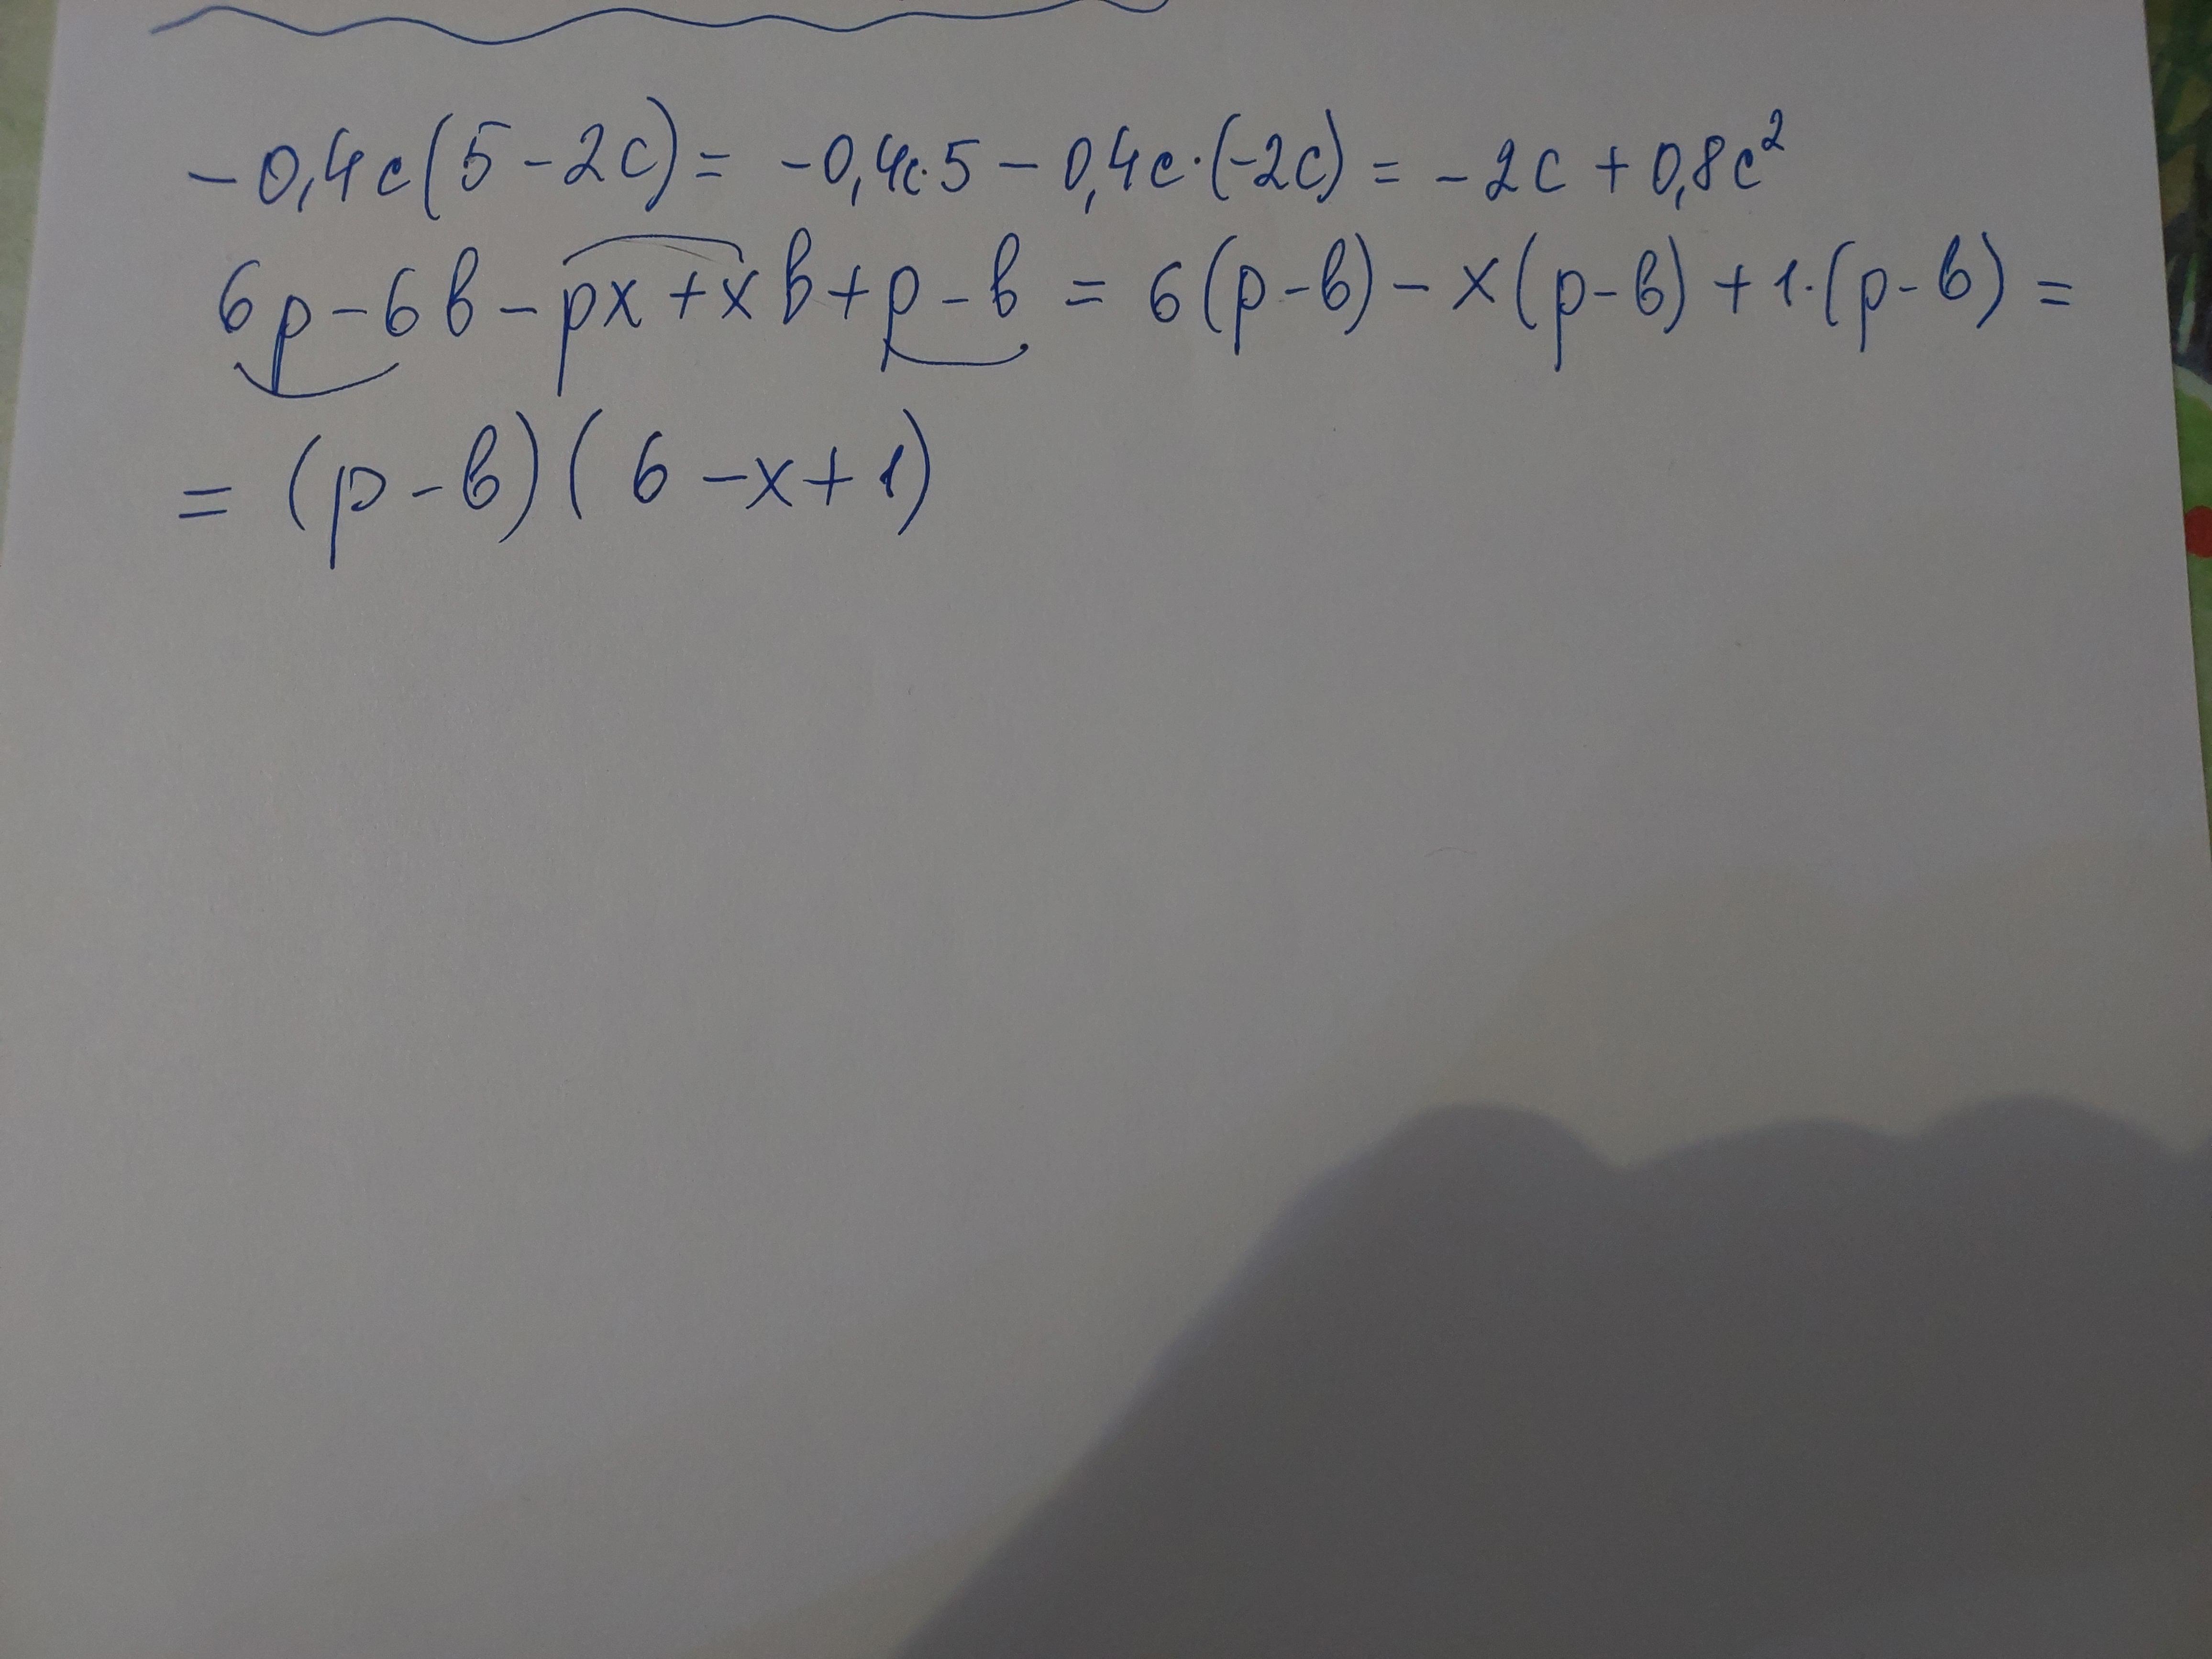 -0,4c(5-2c)= -0,4c·5-0,4c·(-2c)= -2c+0,8c²
6p-6в-px+xв+p-в = 6(p-в)-x(p-в)+1·(p-в)=
= (p-в)(6-x+1)